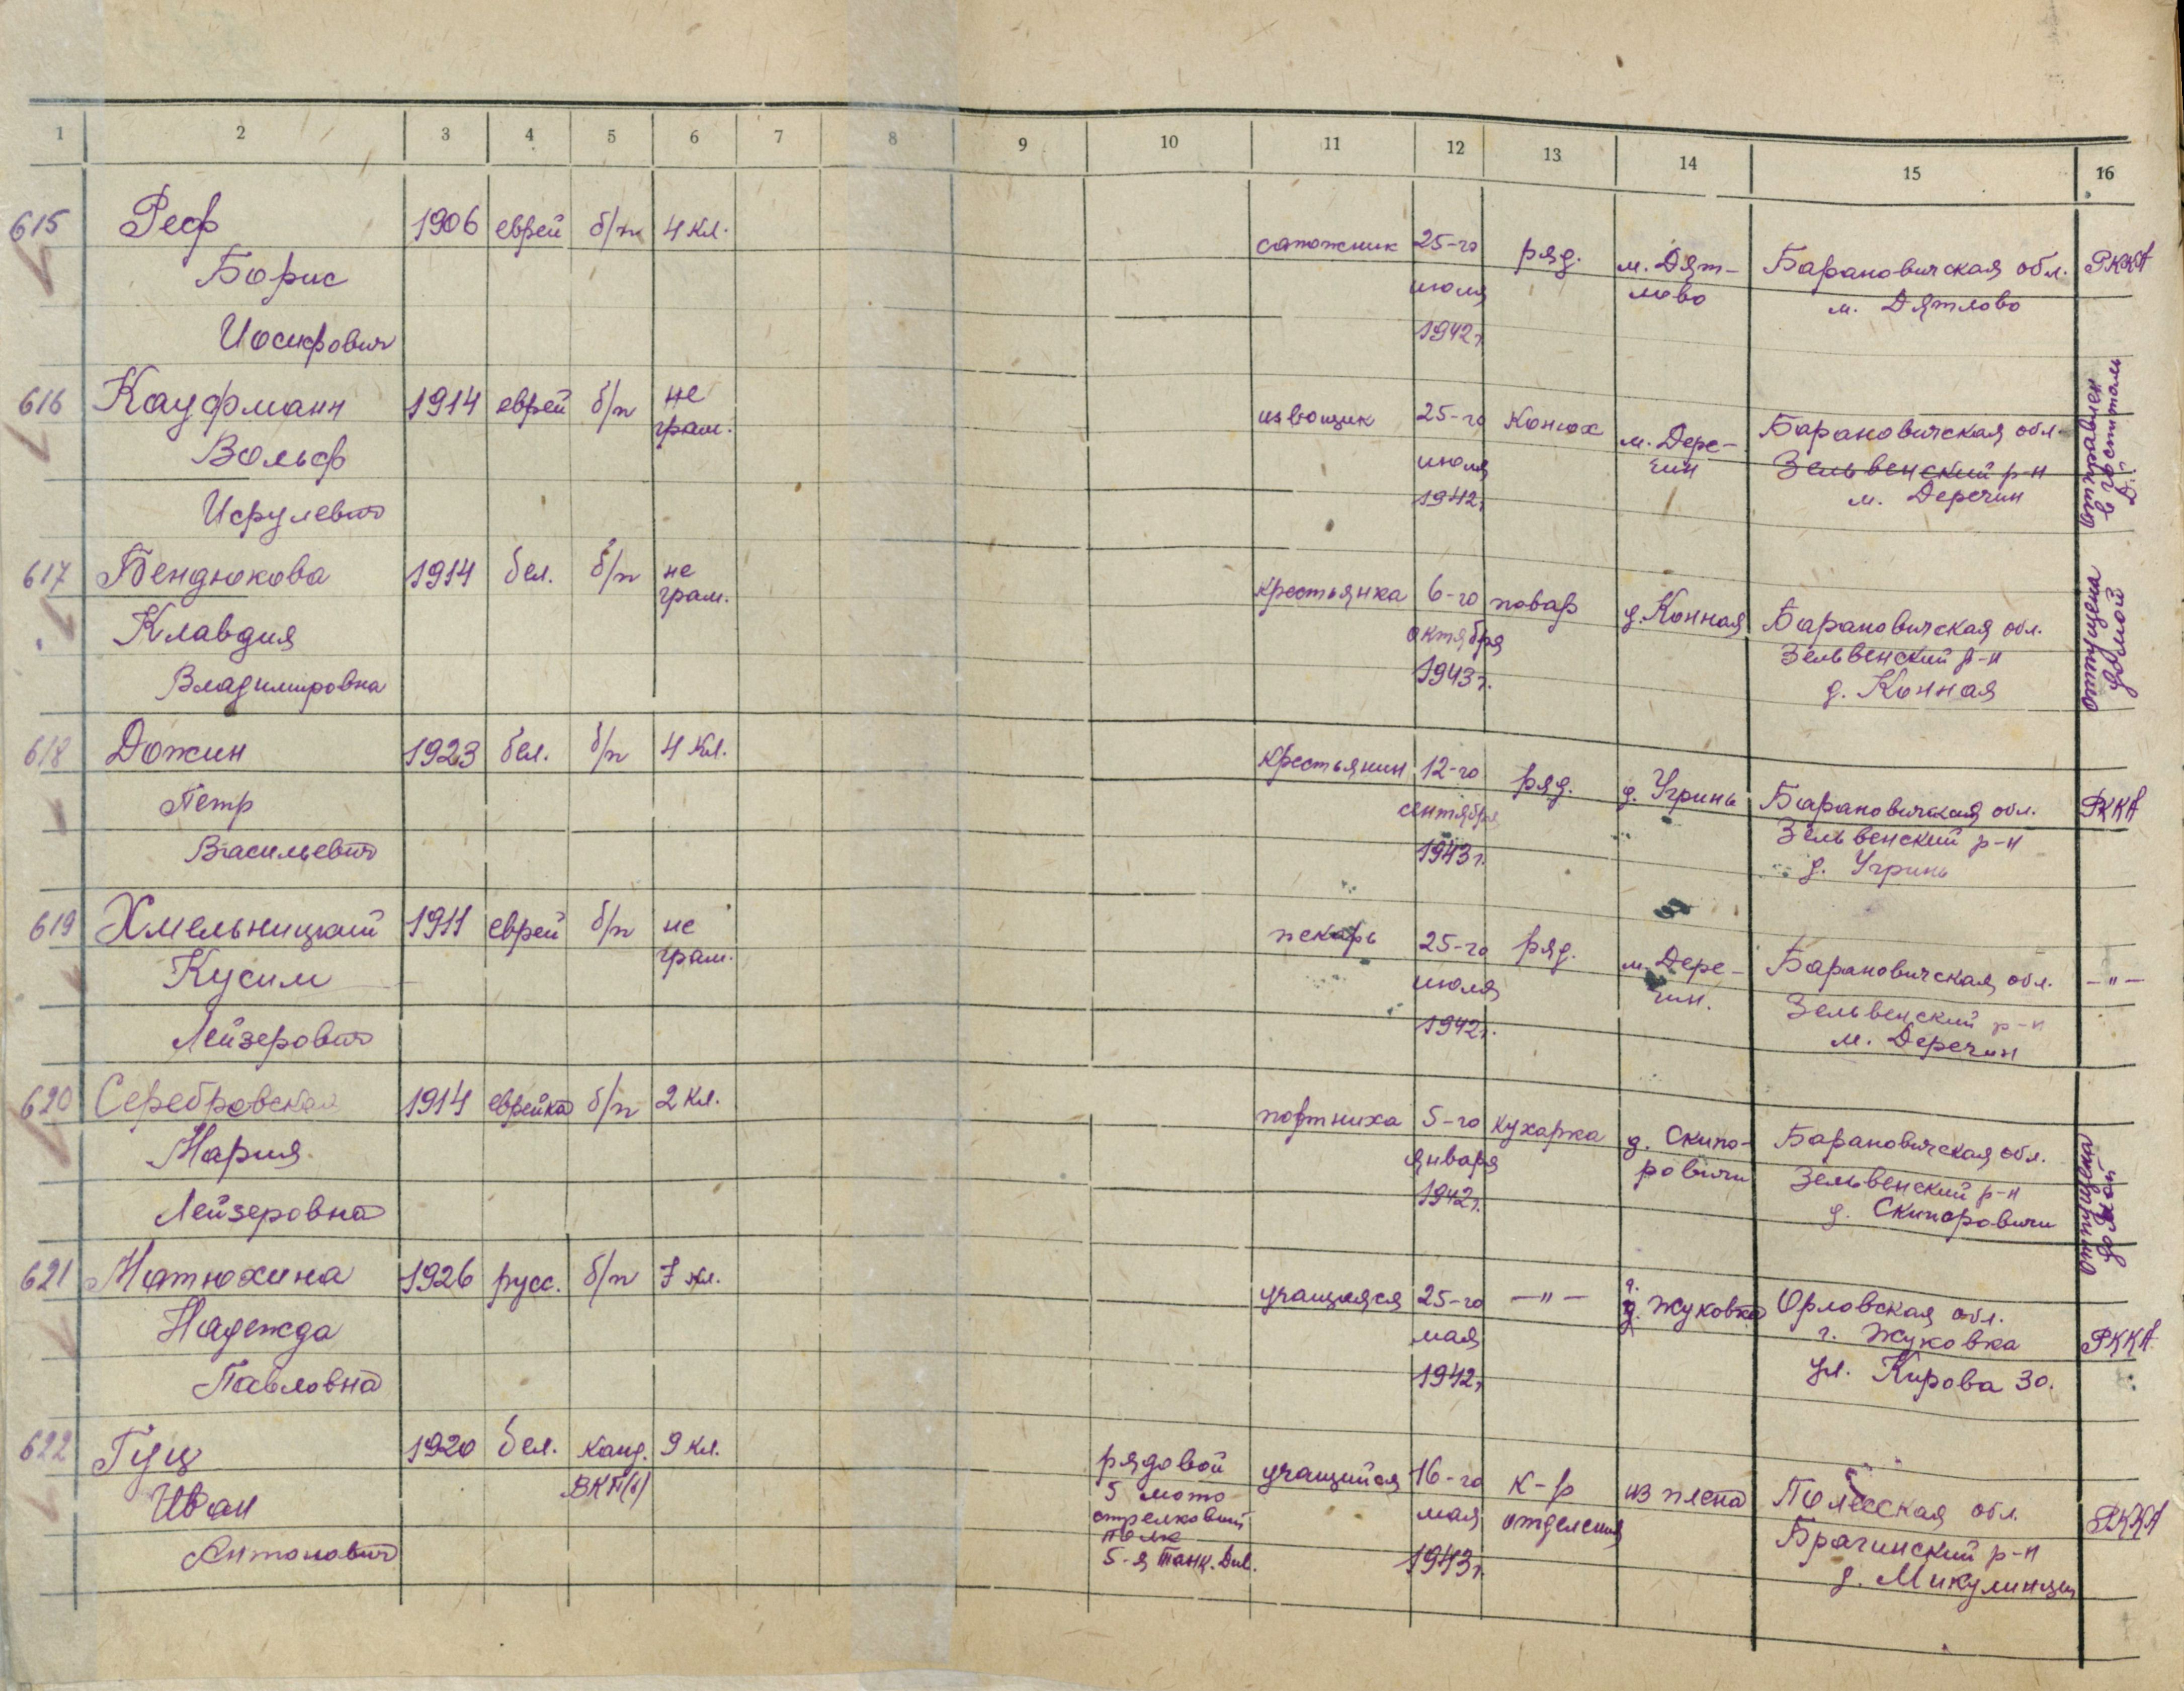 1 2 3 4 5 6 7 8 9 10 11 12 13 14 15 16
615 Реф 1906 еврей б/п 4 кл. сапожник 25-го ряд. м. Дят- Барановичская обл. РККА
Борис июля лово м. Дятлово
Иосифович 1942г.
616 Кауфманн 1914 еврей б/п не извощик 25-го Конюх м. Дере- Барановичская обл. отправлен
Вольф грам. июля чин Зельвенский р-н в госпиталь
Исрулевич 1942г. м. Деречин
617 Бендюкова 1914 бел. б/п не крестьянка 6-го повар д. Конная Барановичская обл. отпущена
Клавдия грам. октября Зельвенский р-н домой
Владимировна 1943г. д. Конная
618 Дожин 1923 бел. б/п 4 кл. крестьянин 12-го ряд. д. Угринь Барановичская обл. РККА
Петр сентября Зельвенский р-н
Васильевич 1943г. д. Угринь
619 Хмельницкий 1911 еврей б/п не пекарь 25-го ряд. м. Дере- Барановичская обл. -"-
Кусим грам. июля чин. Зельвенский р-н
Лейзерович 1942г. м. Деречин
620 Серебровская 1914 еврейка б/п 2 кл. портниха 5-го кухарка д. Скипо- Барановичская обл. отпущена
Мария января ровичи Зельвенский р-н домой
Лейзеровна 1942г. д. Скипоровичи
621 Матюхина 1926 русс. б/п 7 кл. учащаяся 25-го -"- г. Жуковка Орловская обл. РККА
Надежда мая г. Жуковка
Павловна 1942г. ул. Кирова 30.
622 Гуц 1920 бел. канд. 9 кл. рядовой учащийся 16-го к-р из плена Полесская обл. РККА
Иван ВКП(б) 5 мото мая отделения Брагинский р-н
стрелковый
полк
Антонович 5-я Танк. Див. 1943г. д. Микулинцы